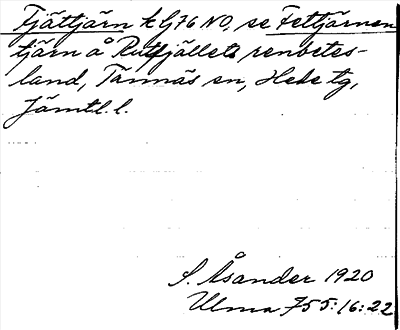 Fjättjärn k G76 NO, se Fettjärnen
tjärn å Rutfjällets renbetes-
land, Tännäs sn, Hede tg,
Jämtl. l.
S. Åsander 1920
Ulma 755:16:22